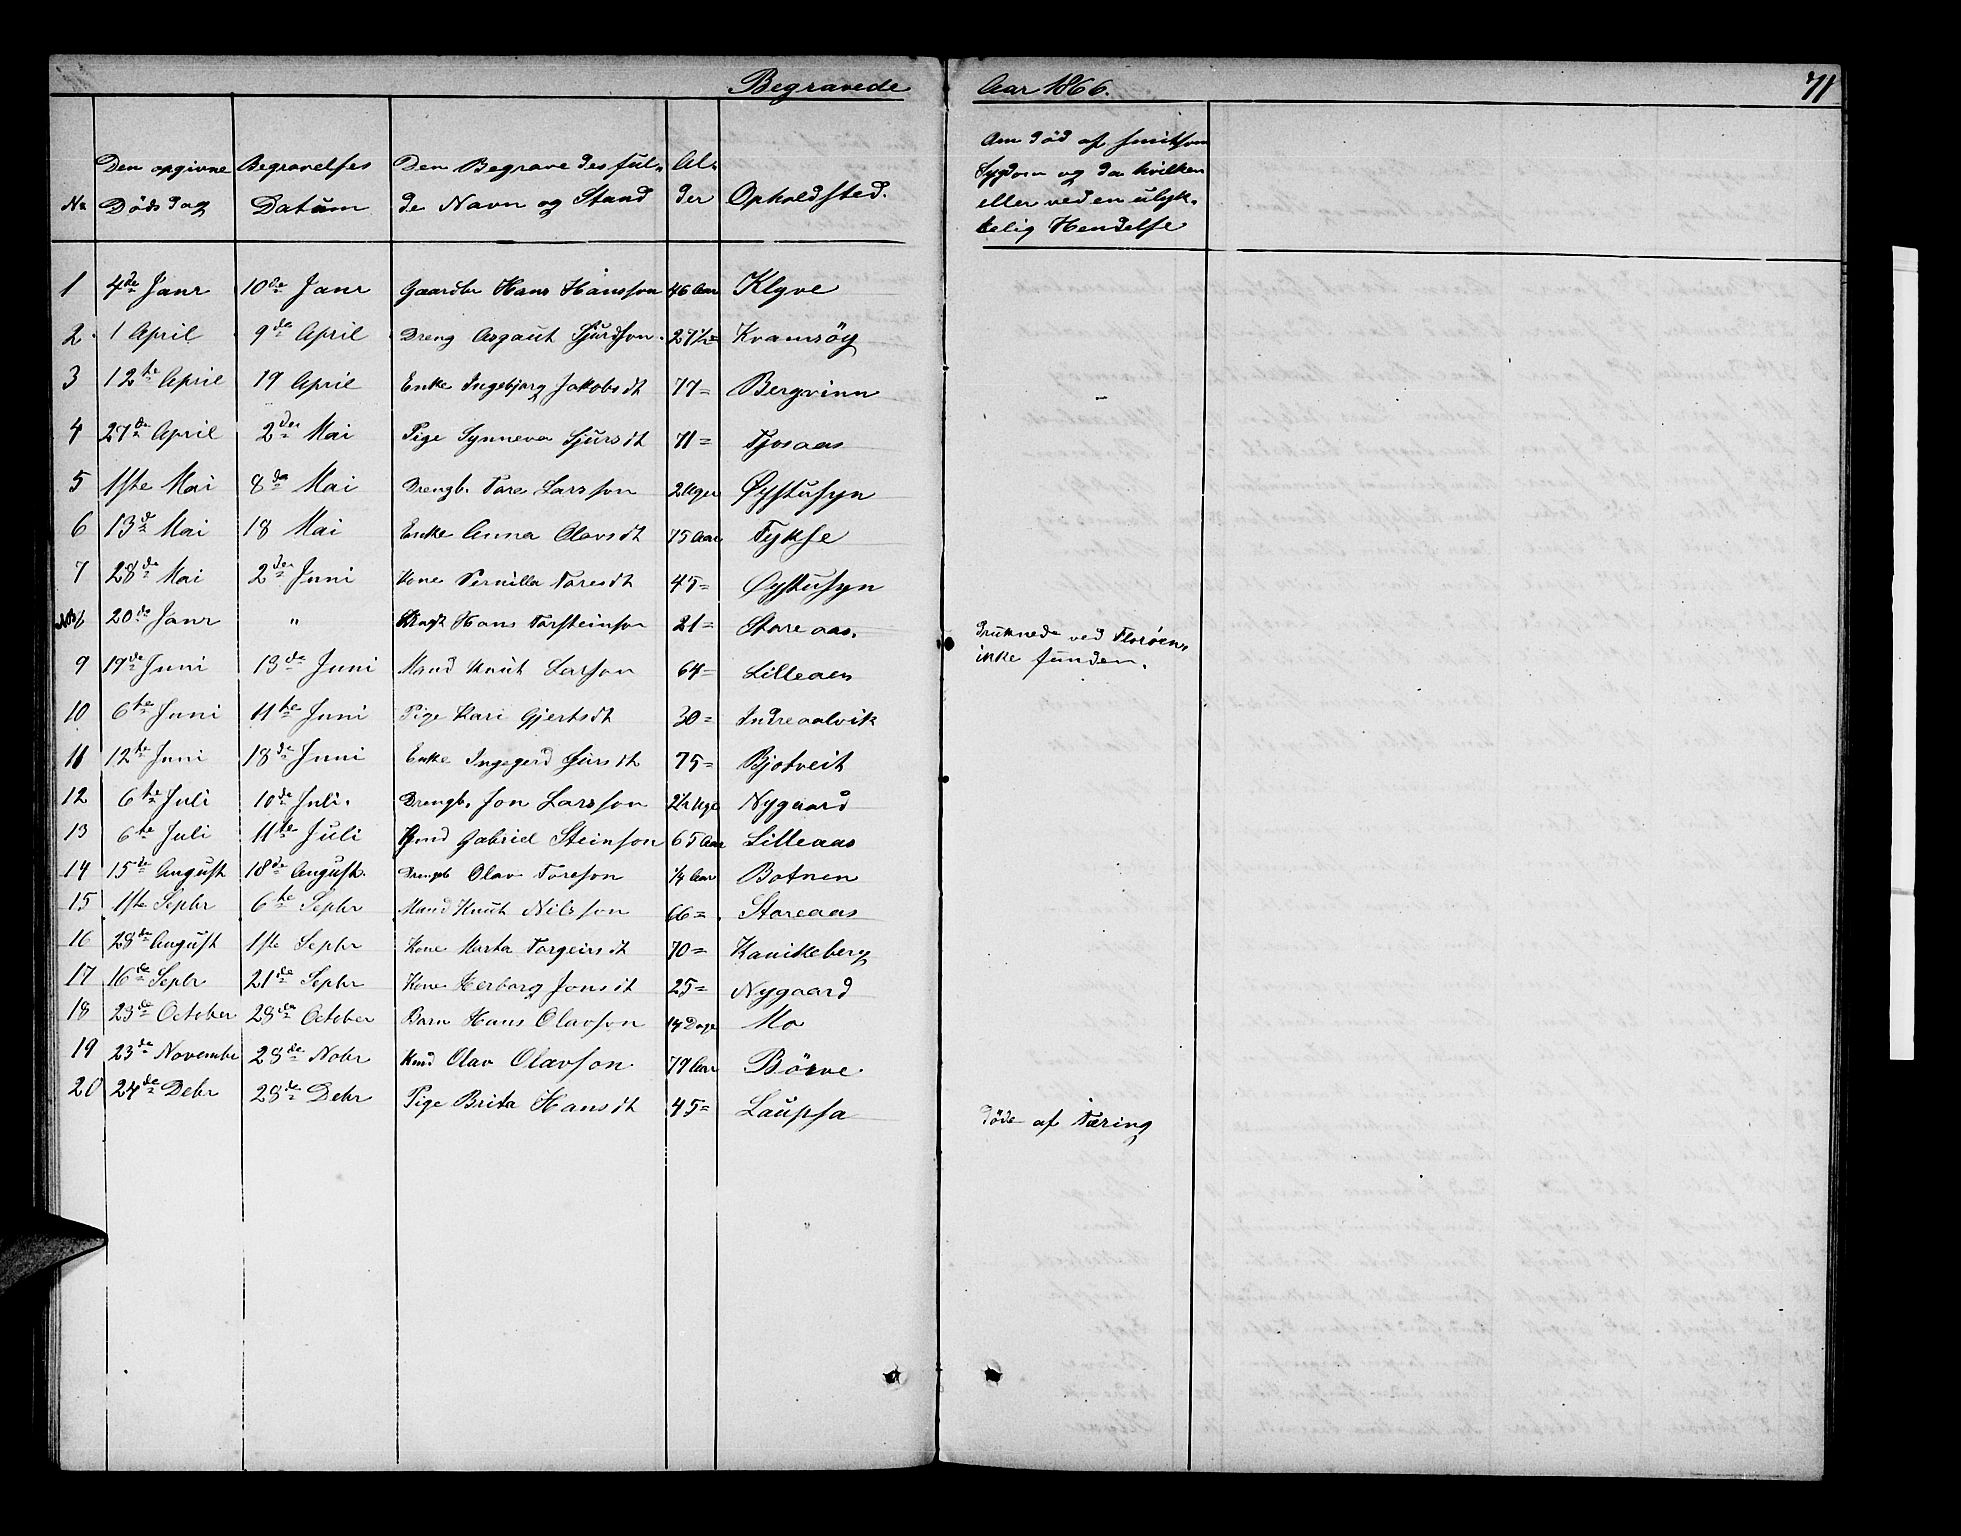 Begravede Aar 1866. 71
No Den opgivne Dødsdag Begravelses Datum Den Begravedes fulde Navn og Stand Alder Opholdsted. Om død af smitsom Sygdom og da hvilken eller ved en ulykkelig Hendelse
1 4de Janr 10de Janr Gaardbr Hans Hansson 46 Aar Klyve
2. 1 April 9de April Dreng Asgaut Sjurdson. 27½= Kvamsöy
3 12te April 19 April Enke Ingebjorg Jakobsdt 77= Bergvinn
4 27de April 2den Mai Pige Synneva Sjursdt 71= Tjosaas
5 1ste Mai 8de Mai Drengb. Tore Larsson 2 Uger Øystusyn
6 13de Mai 18 Mai Enke Anna Olavsdt 75 Aar Fykse
7 28de Mai 2den Juni Kone Pernilla Toresdt 45= Øystusyn
20de Janr " Hans Torsteinson 21= Storeaas. druknede ved Florøen, ikke funden.
9 Juni 13de Juni Mand Knut Larsson 64= Lilleaas
10 6te Juni 11te Juni Pige Kari Gjertsdt 30= Indreaalvik
11 12te Juni 18de Juni Enke Ingegerd Sjursdt 75= Bjotveit
12 6te Juli 10de Juli. Drengb. Jon Larsson 2½ Uge Nygaard
13 6te Juli 11te Juli Gabriel Steinson 65 Aar Lilleaas
14 15de August 18de August. Drengb Olav Toreson ¼ Aar Botnen
15 1ste Sepbr 6te Sepbr Mand Knut Nilsson 66= Storeaas
16 28de August 1ste Sepbr Kone Marta Torgeirsdt 70= Kanikeberg
17 16de Sepbr 21de Sepbr Kone Herborg Jonsdt 25= Nygaard
18 23de October 28de October Barn Hans Olavson 14 Dage Mo
19 23de Novembr 28de Nobr Olav Olavson 79 Aar Börve
20 24de Debr 28de Debr Pige Brita Hansdt 45= Laupsa døde af Tæring